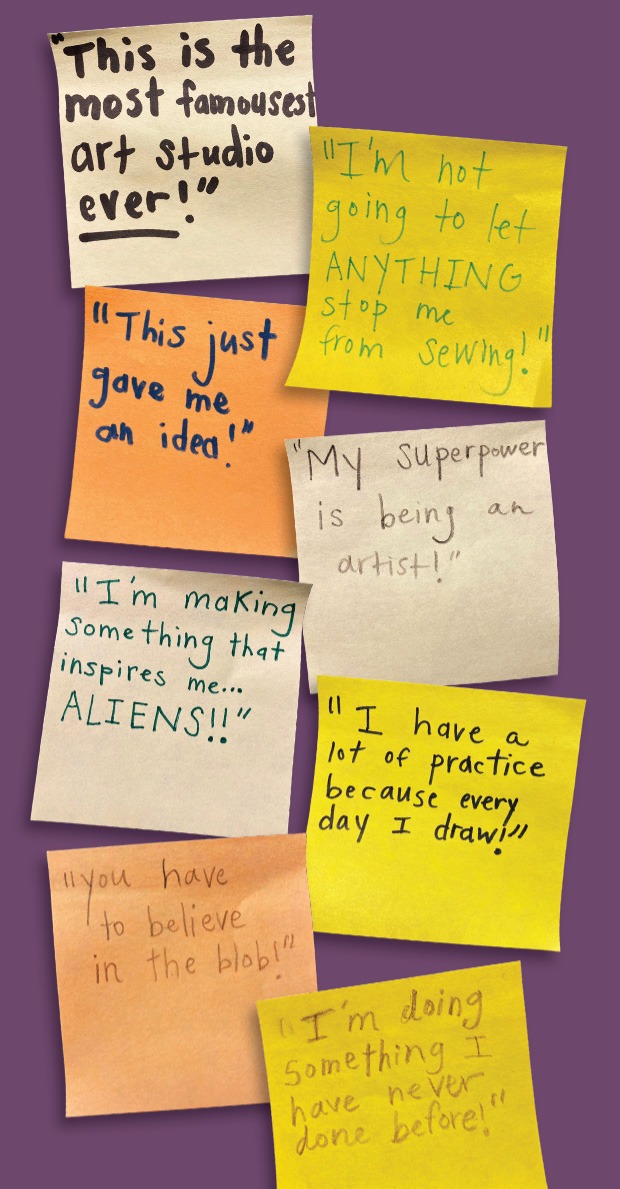 "This is the
most famousest
art studio
ever!"
"I'm not
going to let
ANYTHING
stop me
from sewing!"
"This just
gave me
an idea!"
"My superpower
is being an
artist!"
"I'm making
something that
inspires me...
ALIENS!!"
"I have a
lot of practice
because every
day I draw!"
"you have
to believe
in the blob!"
"I'm doing
something I
have never
done before!"